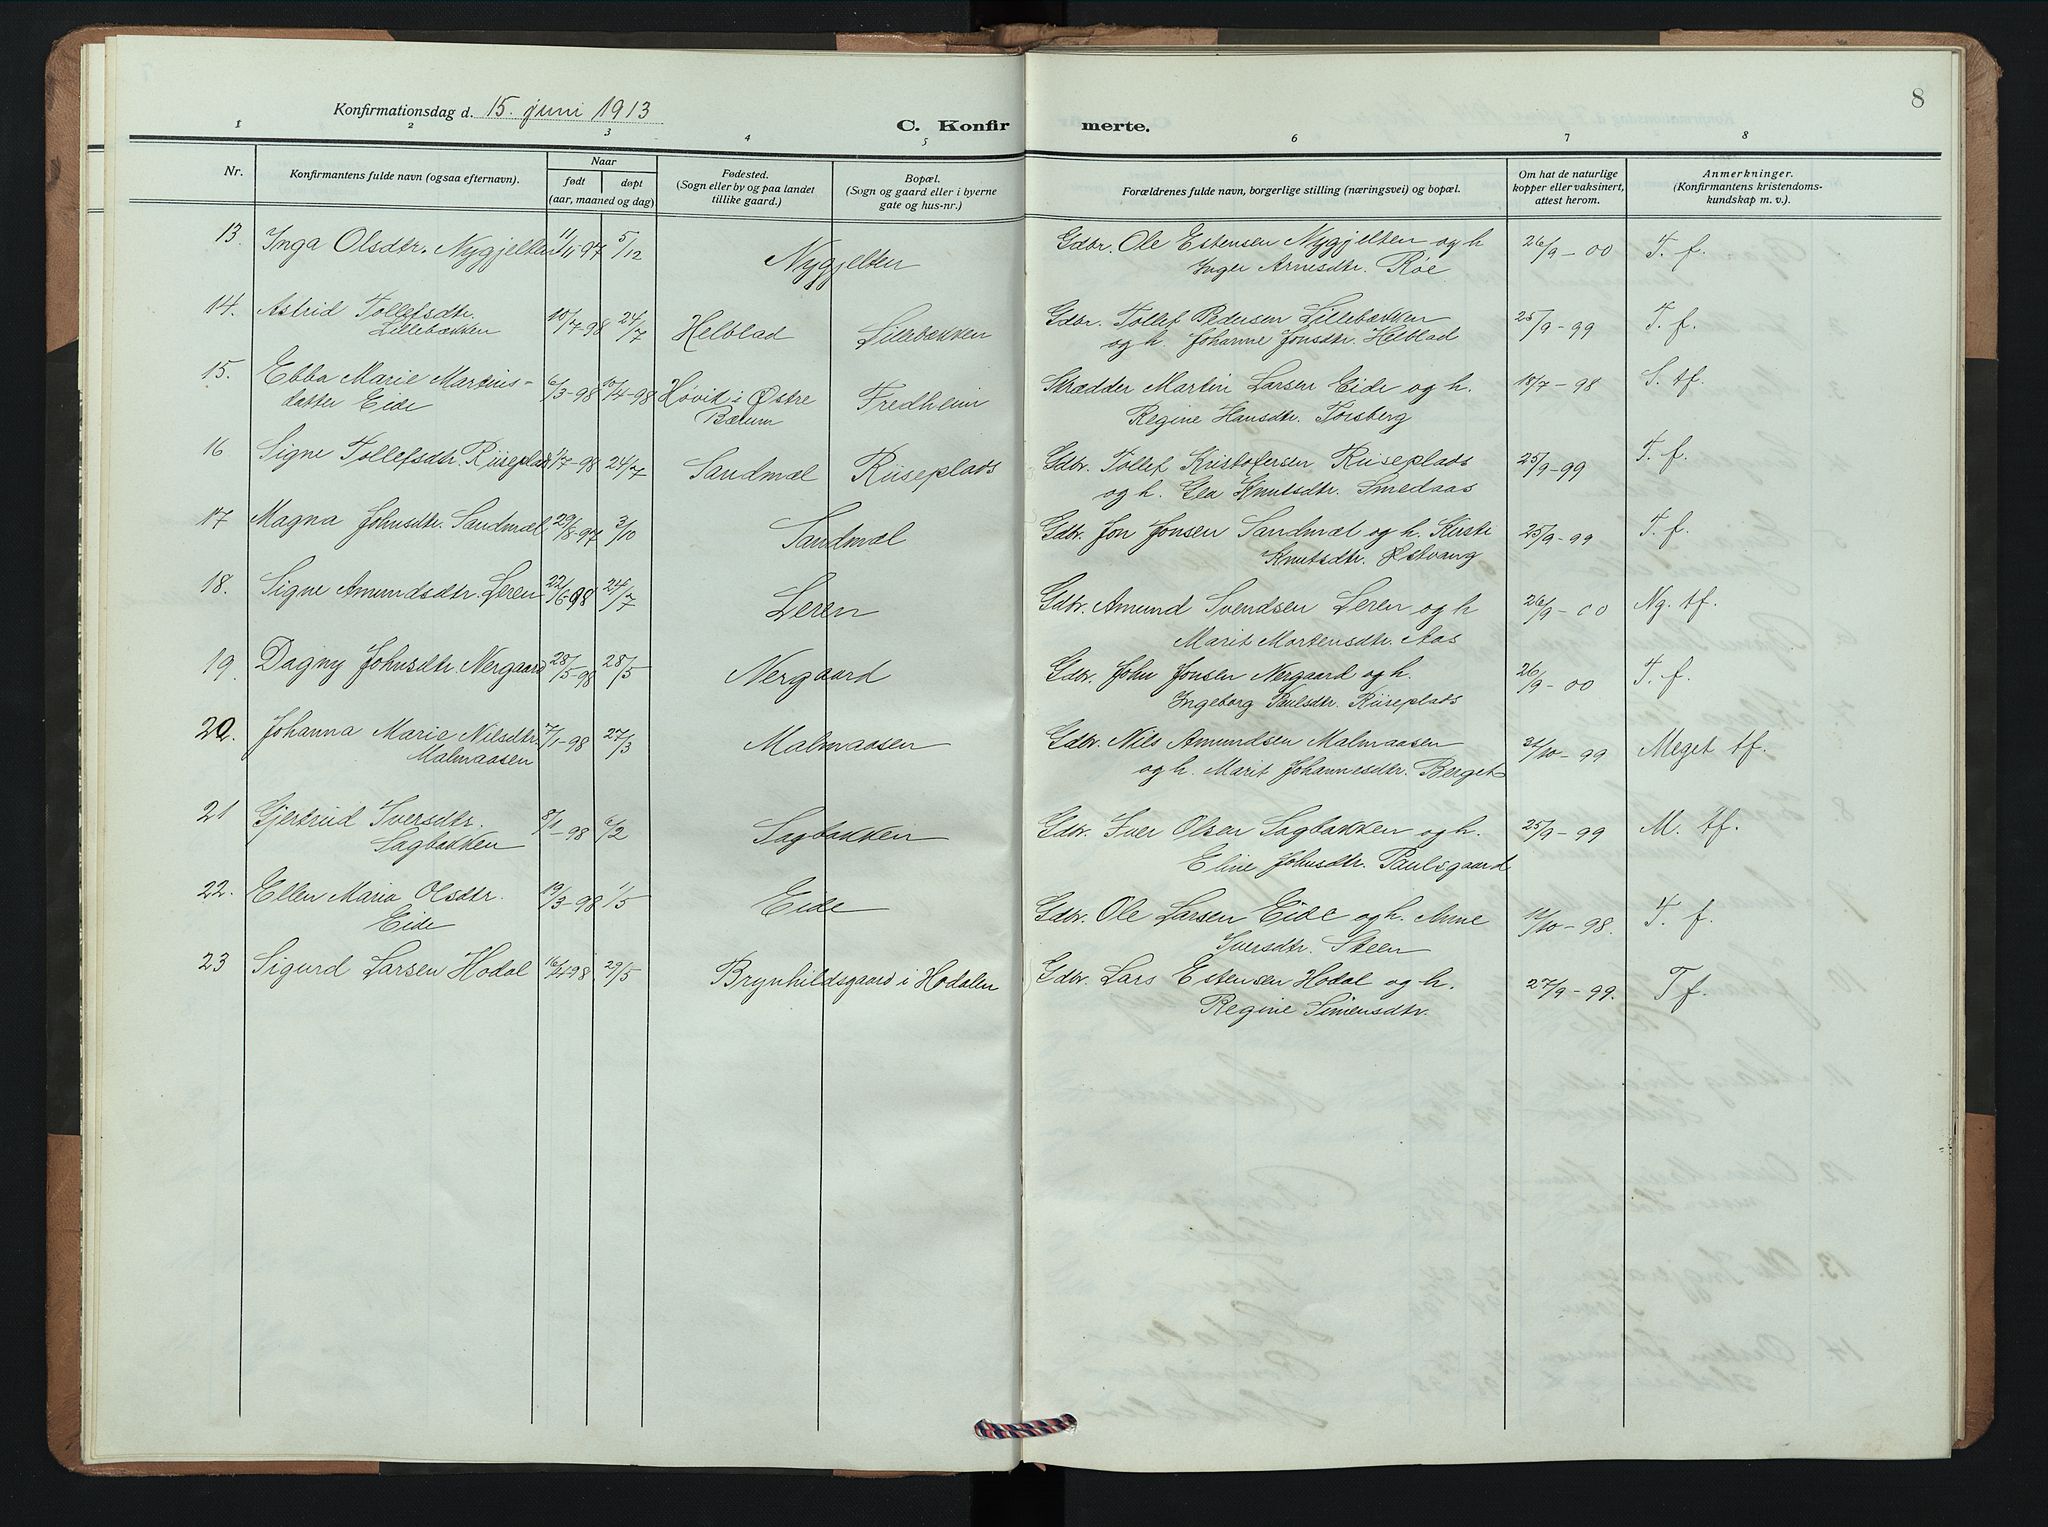 8
Konfirmationsdag d. 15. juni 1913
C. Konfir merte.
1 2 3 4 5 6 7 8
Nr. Konfirmantens fulde navn (ogsaa efternavn). Naar født døpt (aar, maaned og dag) Fødested. (Sogn eller by og paa landet tillike gaard.) Bopæl. (Sogn og gaard eller i byerne gate og hus-nr.) Forældrenes fulde navn, borgerlige stilling (næringsvei) og bopæl. Om hat de naturlige kopper eller vaksinert, attest herom. Anmerkninger. (Konfirmantens kristendomskundskap m. v.).
13. Inga Olsdtr. Nygjelten 11/11 97 5/12 Nygjelten Gdbr. Ole Estensen Nygjelten og h 26/9 - 00 T. f.
Inger Arnesdtr. Røe
14. Astrid Tollefsdtr. 10/7-98 24/7 Helblad Lillebækken Gdbr. Tollef Pedersen Lillebækken 25/9 - 99 T. f.
Lillebækken og h. Johanne Jonsdtr. Helblad
15. Ebba Marie Martins- 6/3-98 10/4-98 Høvik i Østre Fredheim Skrædder Martin Larsen Eide og h. 18/7 - 98 S. tf.
datter Eide Bærum Regine Hansdtr. Torsberg
16 Signe Tollefsdtr. Riiseplads 1/7-98 24/7 Sandmæl Riiseplads Gdbr. Tollef Kristofersen Riiseplads 25/9-99 T. f.
og h. Gea Knutsdtr. Smedaas
17 Magna Johnsdtr. Sandmæl 29/8-97 3/10 Sandmæl Gdbr. Jon Jonsen Sandmæl og h. Kirsti 25/9-99 T. f.
Knutsdtr. Østvang
18. Signe Amundsdtr. Leren 22/6 98 24/7 Leren Gdbr. Amund Svendsen Leren og h 26/9 - 00 Ng. tf.
Marit Mortensdtr. Aas
19 Dagny Johnsdtr. Nergaard 28/5-98 28/5 Nergaard Gdbr. John Jonsen Nergaard og h. 26/9 - 00 T. f.
Ingeborg Paulsdtr. Riiseplads
20. Johanna Marie Nilsdtr. 7/1-98 27/3 Malmaasen Gdbr. Nils Amundsen Malmaasen 31/10 - 99 Meget tf.
Malmaasen og h. Marit Johannesdtr. Berget
21 Gjertrud Iversdtr. 8/1-98 6/2 Sagbakken Gdbr. Iver Olsen Sagbakken og h. 25/9 - 99 M. tf.
Sagbakken Eline Johnsdtr. Paulsgaard
22. Ellen Maria Olsdtr. 19/3-98 1/5 Eide Gdbr. Ole Larsen Eide og h. Anne /10 - 98. T. f.
Eide Iversdtr. Steen
23 Sigurd Larsen Hodal 16/4-98 29/5 Brynhildsgaard i Hodalen Gdbr. Lars Estensen Hodal og h. 27/9 - 99. T f.
Regine Simensdtr.